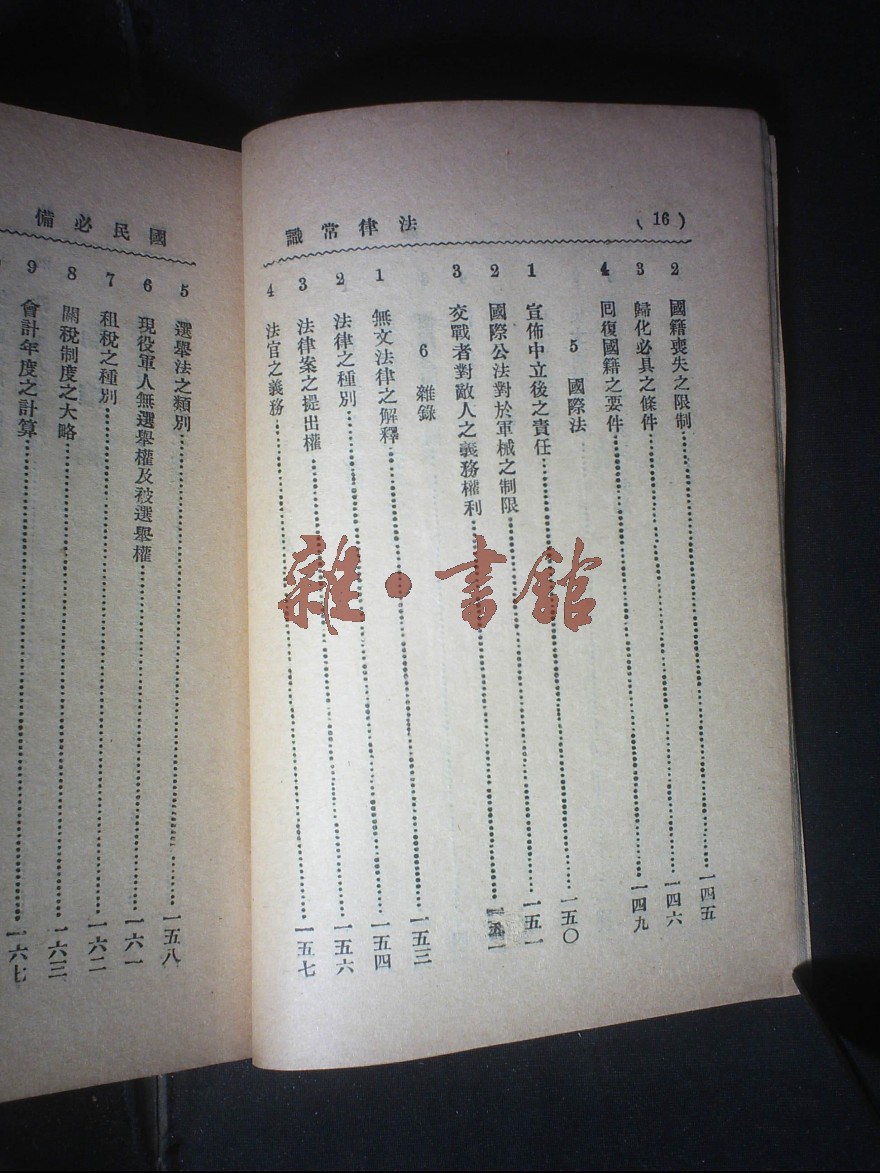 (16)
法律常識
2 國籍喪失之限制……一四五
3 歸化必具之條件……一四六
4 回復國籍之要件……一四九
5 國際法
1 宣佈中立後之責任……一五〇
2 國際公法對於軍械之制限……一五一
3 交戰者對敵人之義務權利……
6 雜錄
1 無文法律之解釋……一五三
2 法律之種別……一五四
3 法律案之提出權……一五六
4 法官之義務……一五七
國民必備
5 選舉法之類別……一五八
6 現役軍人無選舉權及被選舉權……一六一
7 租稅之種別……一六二
8 關稅制度之大略……一六三
9 會計年度之計算……一六七
雜·書館